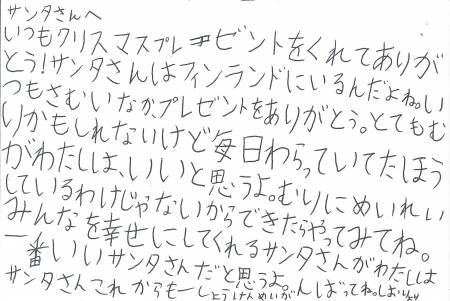 サンタさんへ
いつもクリスマスプレゼビントをくれてありが
とう!サンタさんはフィンランドにいるんだよね。い
つもさむいなかプレゼントをありがとう。とてもむ
りかもしれないけど毎日わらっていてたほう
がわたしは、いいと思うよ。むりにめいれい
しているわけじゃないからできたらやってみてね。
みんなを幸せにしてくれるサンタさんがわたしは
一番いいサンタさんだと思うよ。
サンタさんこれからも一しょうけんめいがんばってね。